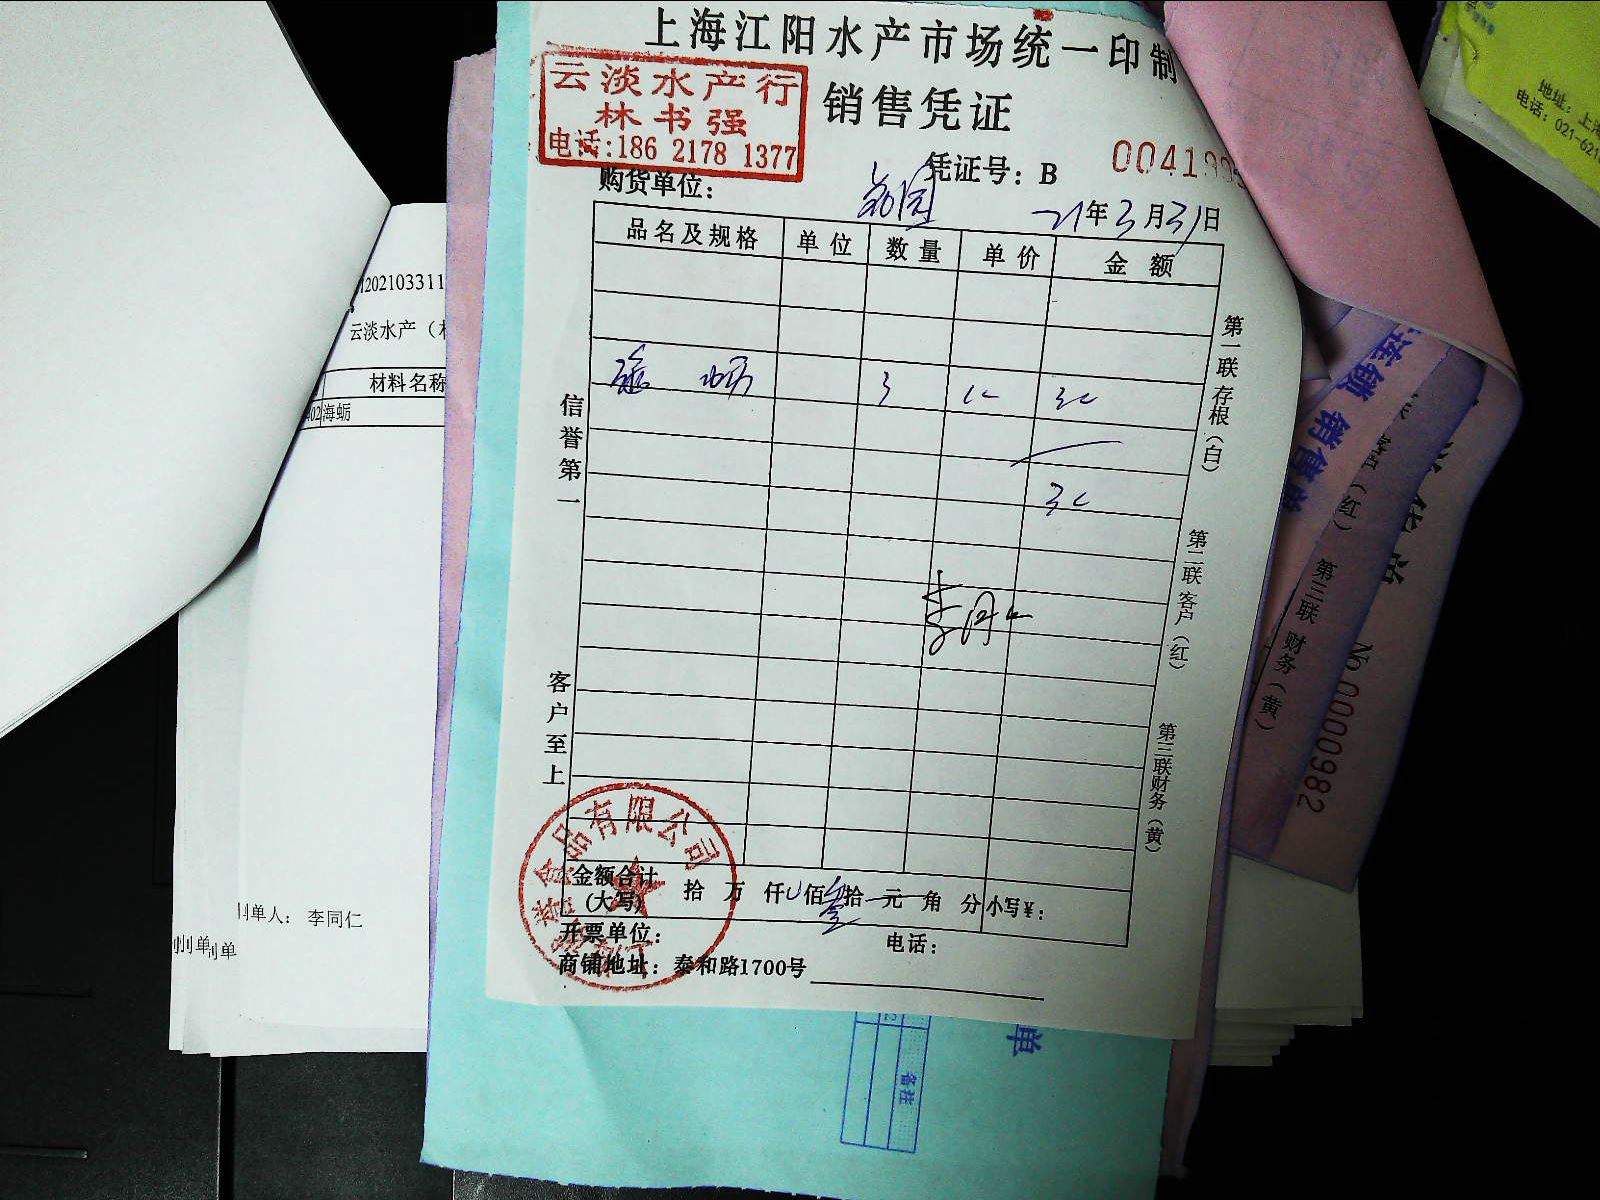 上海江阳水产市场统一印制
云淡水产行
林书强
电话:186 2178 1377
销售凭证
凭证号: B 00419
购货单位:
21年3月31日
品名及规格 单位 数量 单价 金额
蛎 3 10 30
30
李同仁
信誉第一
客户至上
第一联存根(白)
第二联客户(红)
第三联财务(黄)
金额合计
(大写) 拾 万 仟 佰叁拾 元 角 分 小写¥:
开票单位: 电话:
商铺地址: 泰和路1700号
食品有限公司
1202103311
云淡水产(
材料名称
02 海蛎
制单人: 李同仁
制单
制单
地址: 上海
电话: 021-621
连锁 销售单
(红)
第三联 财务(黄)
No 0000982
备注
单